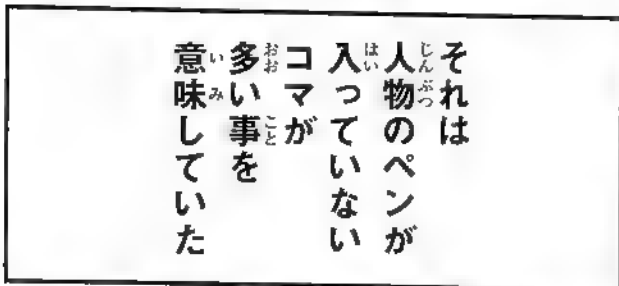 それは
人物のペンが
入っていない
コマが
多い事を
意味していた